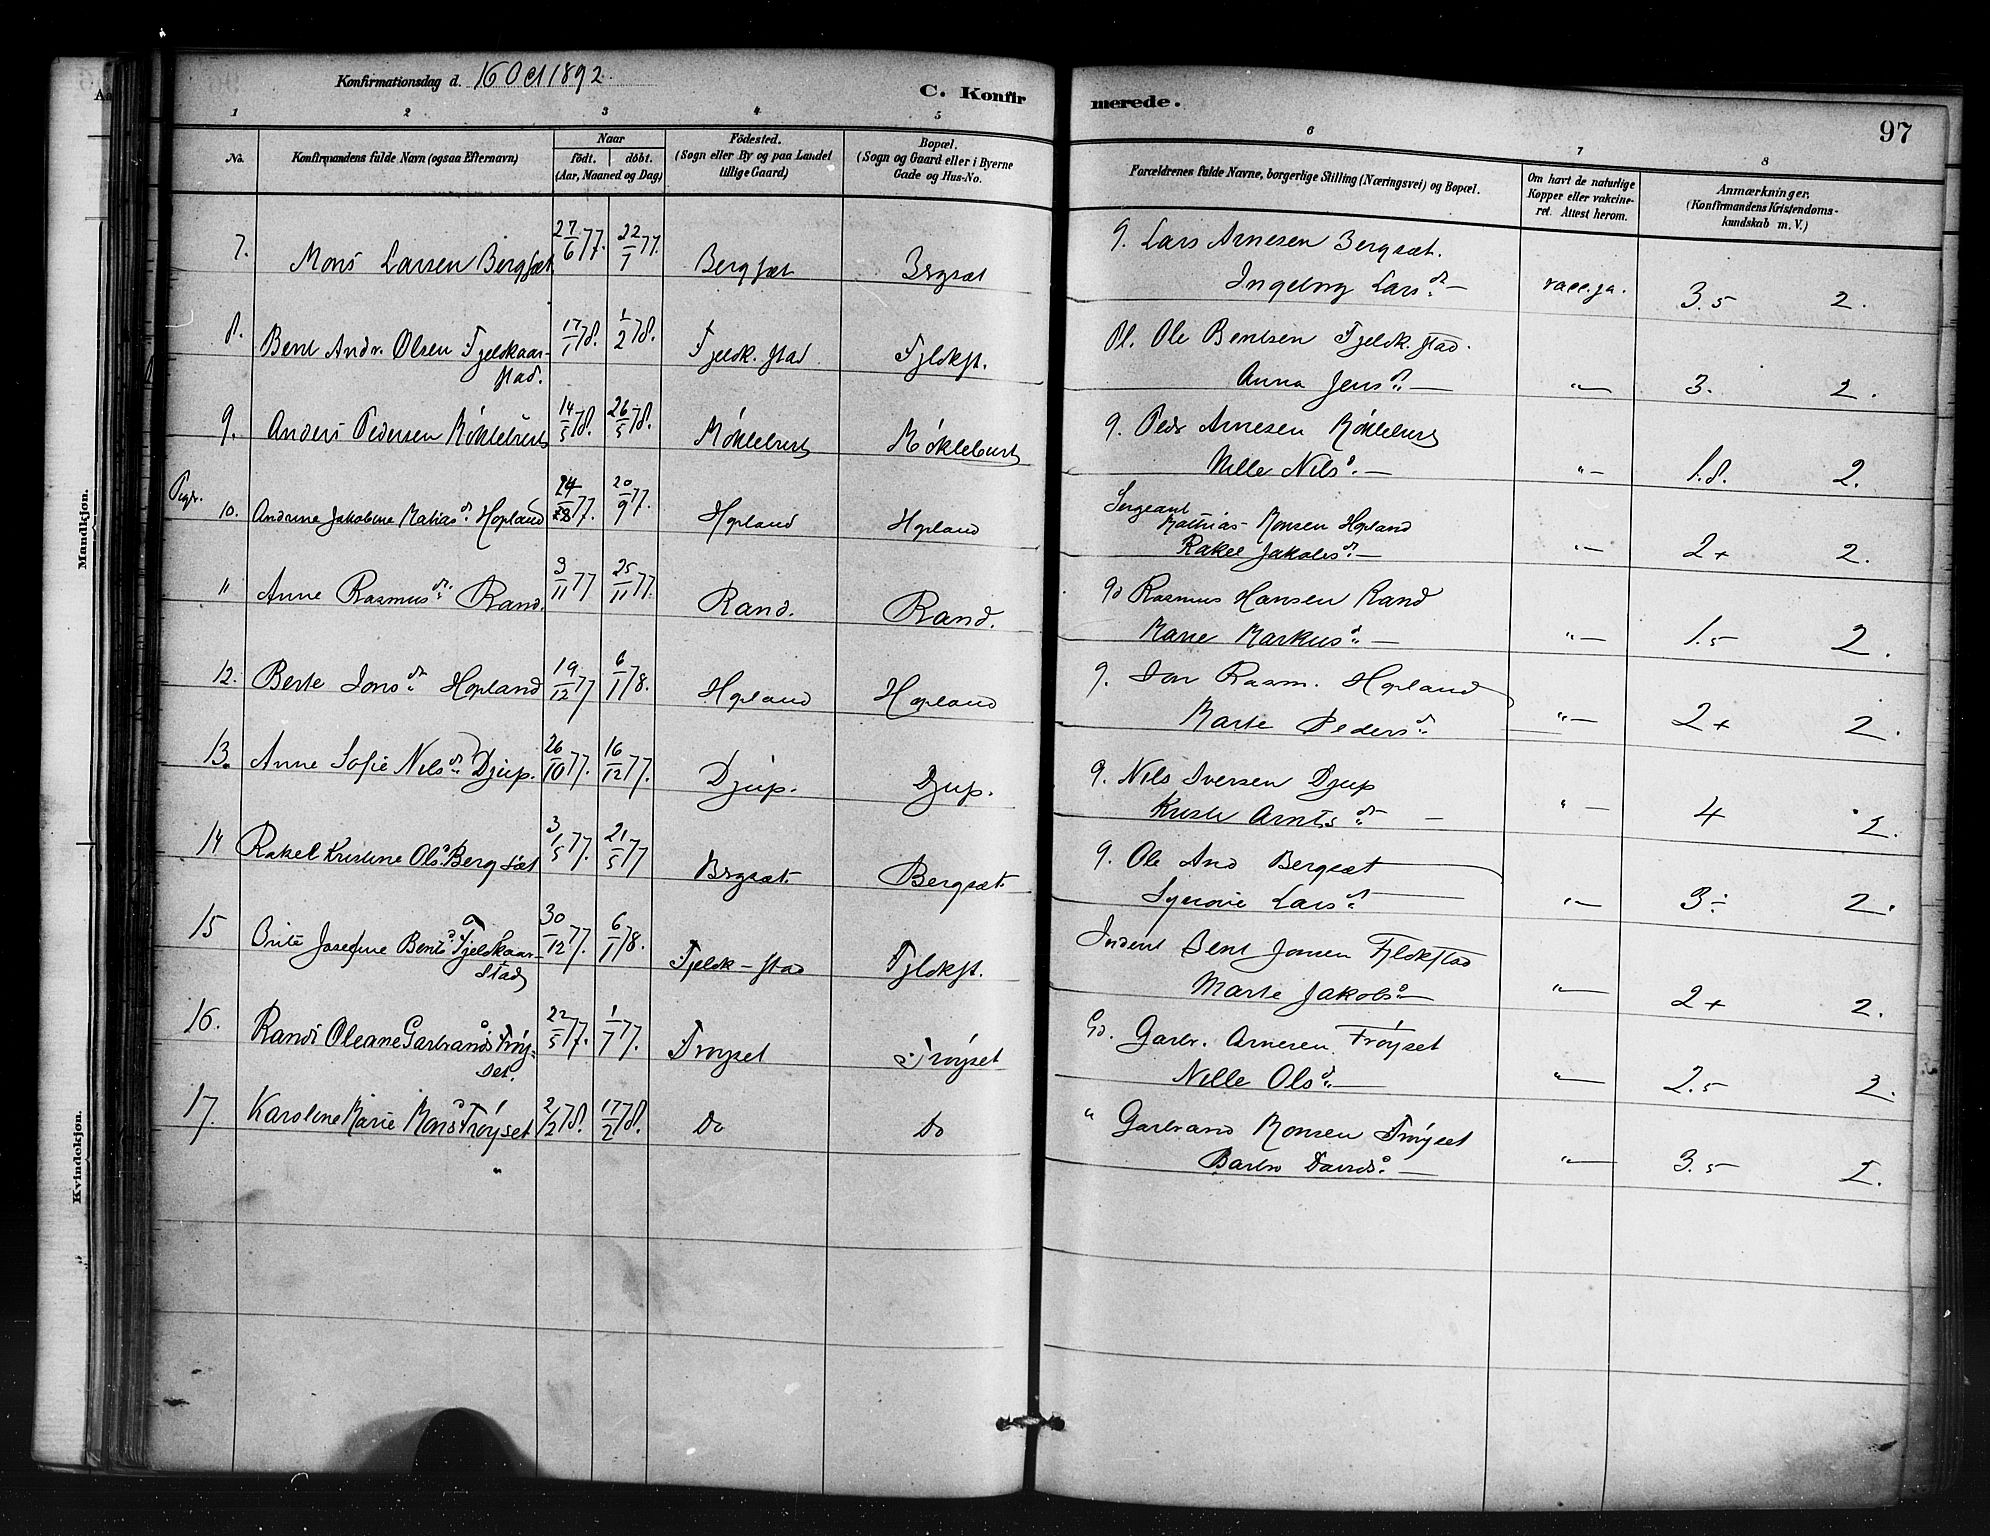 Konfirmationsdag d. 16 Oct 1892
C. Konfirmerede.
97
1 2 3 4 5 6 7 8
No. Konfirmandens fulde Navn (ogsaa Efternavn) Naar født. døbt. (Aar, Maaned og Dag) Fødested. (Sogn eller By og paa Landet tillige Gaard) Bopæl. (Sogn og Gaard eller i Byerne Gade og Hus-No. Forældrenes fulde Navne, borgerlige Stilling (Næringsvei) og Bopæl. Om havt de naturlige Kopper eller vakcineret. Attest herom. Anmærkninger. (Konfirmandens Kristendomskundskab m. V.)
7. Mons Larsen Bergsæt 27/6 77. 22/7 77. Bergsæt Brgsæt G. Lars Arnesen Bergsæt.
Ingebrg Larsd. — vacc. ja. 3.5 2.
8. Bent Andr. Olsen Fjeldkaar- 17/1 78. 1/2 78. Fjeldk. stad Fjldkst. Pl. Ole Bentsen Fjeldk. stad.
stad. Anna Jensd. — "— 3. 2.
9. Anders Pedersen Møklebust 14/5 78. 26/5 78. Møklebust Møklebust G. Peder Arnesen Møklebust
Nille Nilsd. — "— 1.8. 2.
Piger.
10. Andrine Jakobine Matiasd. Hopland 77. 20/9 77. Hopland Hopland Sergeant
Mathias Monsen Hopland
Rakel Jakobsd. — "— 2+ 2.
11 Anne Rasmusd. Rand. 3/11 77 25/11 77. Rand. Rand. Gd Rasmus Hansen Rand
Marie Markusd. — "— 1.5 2.
12. Berte Jonsd. Hopland 19/12 77 6/1 78. Hopland Hopland G. Jon Rasm. Hopland
Marte Pedersd. "— 2+ 2.
13. Anne Sofie Nilsd. Djup. 26/10 77. 16/12 77. Djup. Djup. G. Nils Iversen Djup
Kristi Arntsd. — "— 4 2.
14 Rakel Kristine Olsd. Bergsæt 3/5 77. 21/5 77 Brgsæt. Bergsæt. G. Ole And Bergsæt
Synnøve Larsd. "— 3÷ 2.
15 Brite Josefine Bentsd. Fjeldkaar- 30/12 77. 6/1 78. Fjeldk-stad Fjldkst. Inderst Bent Jonsen Fjldkstad
stad Marte Jakobsd. — "— 2+ 2.
16. Randi Oleane Garbrandsd. Frøy- 22/5 77. 1/7 77. Frøyset Frøyset Gd. Garbr. Arnesen Frøyset
set. Nille Olsd. — "— 2.5 2.
17. Karoline Marie Monsd. Frøyset 2/2 78. 17/2 78. Do Do " Garbrand Monsen Frøyset
" Barbro Davidsd. — "— 3.5 2.
Mandkjøn.
Kvindekjøn.